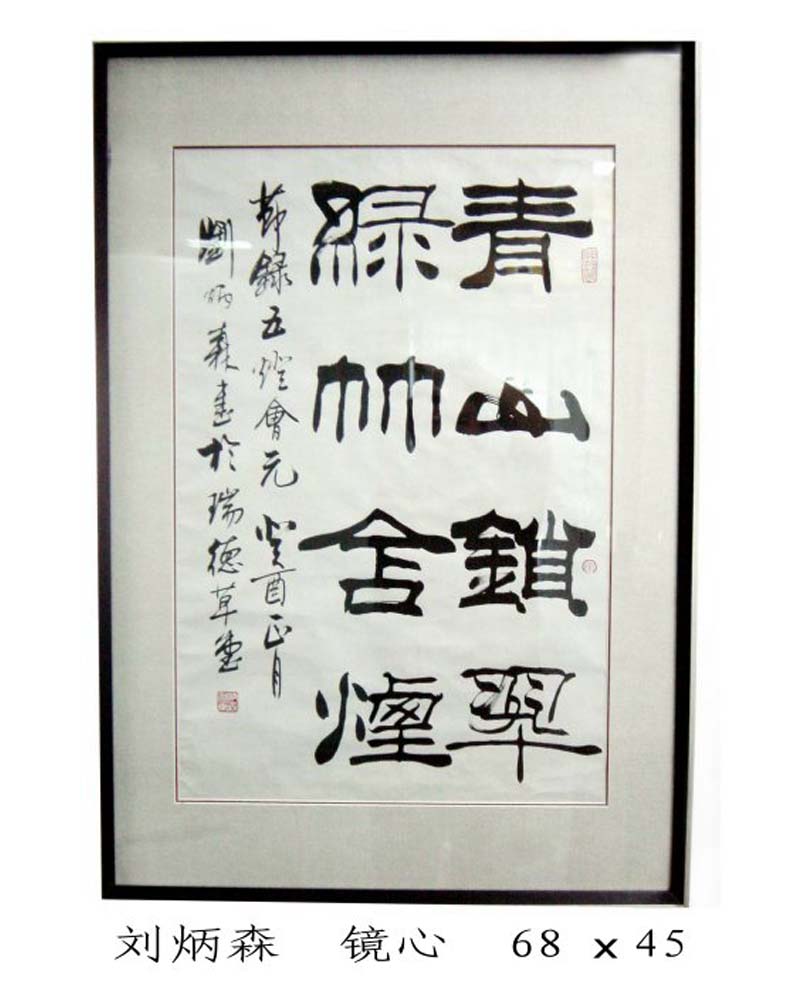 青山鎖翠
綠竹含煙
節錄五燈會元 癸酉正月
劉炳森書於瑞德草堂
刘炳森 镜心 68 x 45